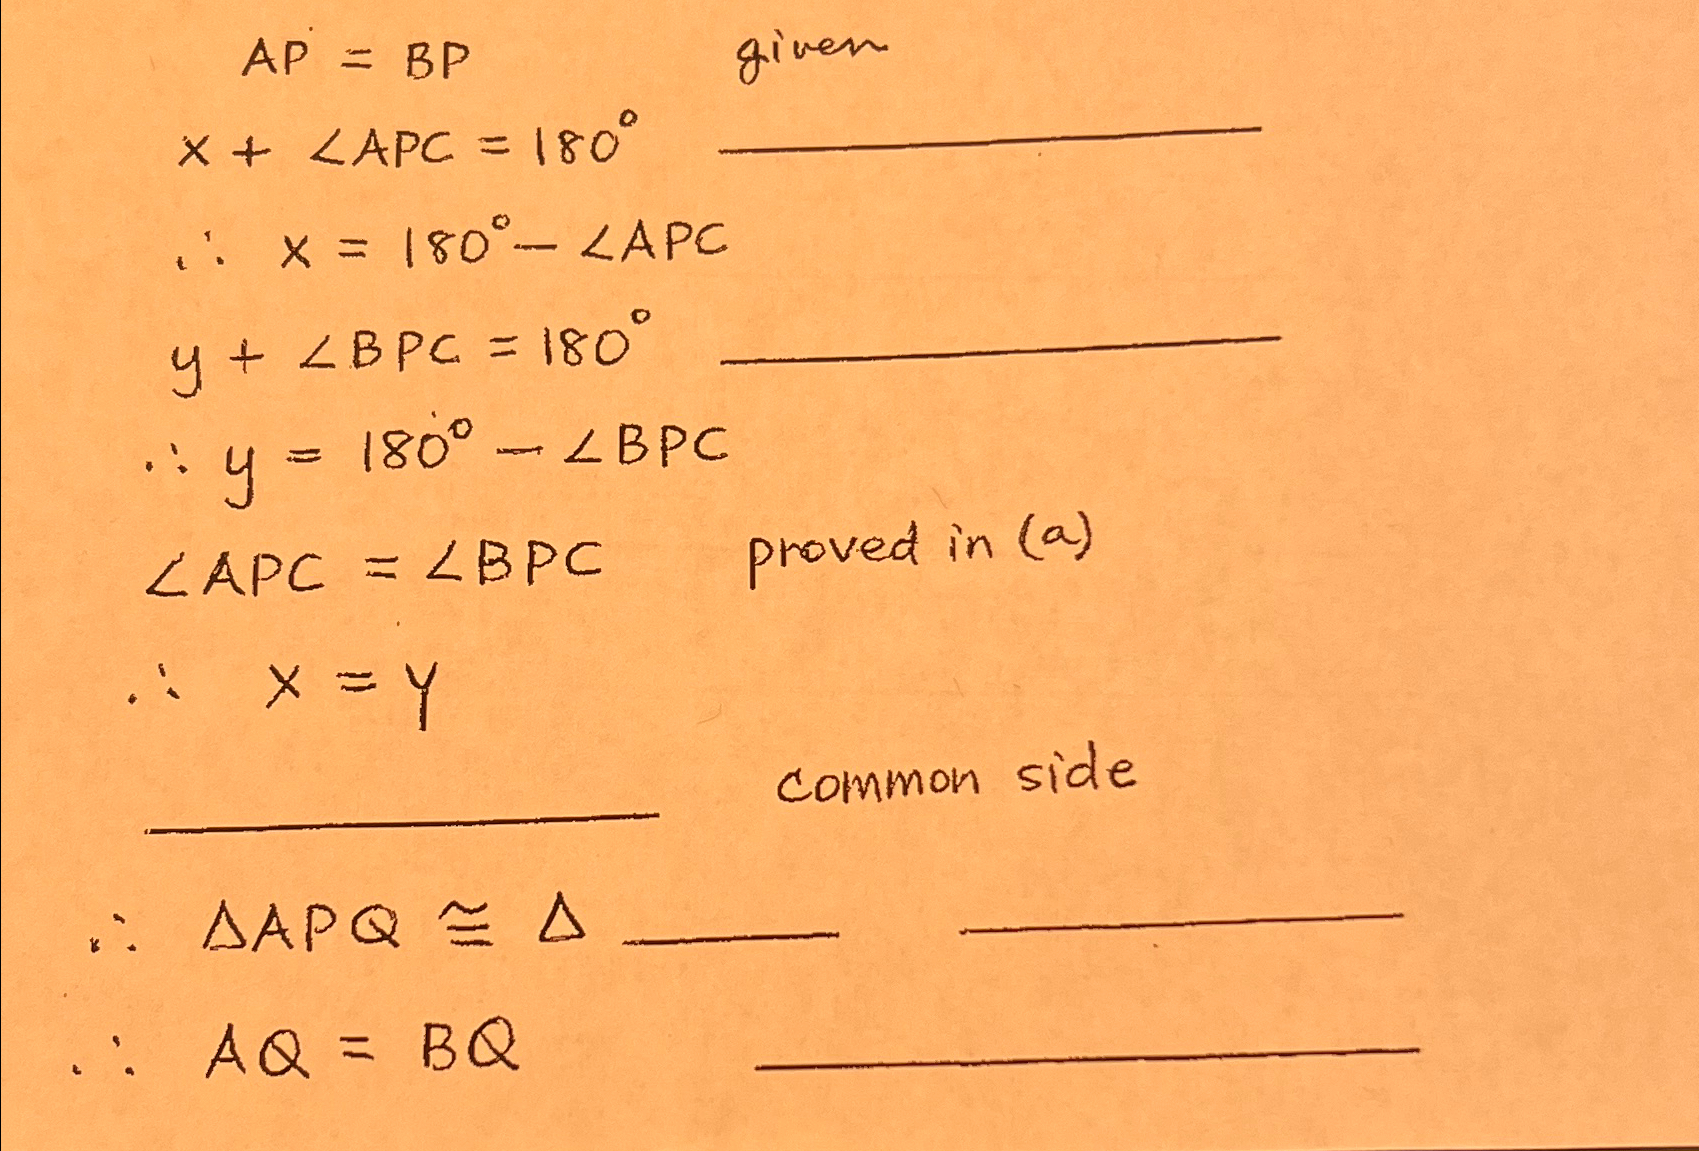 AP = BP given
x + ∠APC = 180° ________
∴ x = 180° - ∠APC
y + ∠BPC = 180° ________
∴ y = 180° - ∠BPC
∠APC = ∠BPC proved in (a)
∴ x = y
________ common side
∴ △APQ ≅ △ ____ ________
∴ AQ = BQ ________